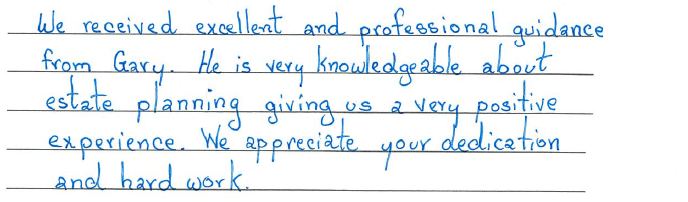 We received excellent and professional guidance
from Gary. He is very knowledgeable about
estate planning giving us a very positive
experience. We appreciate your dedication
and hard work.